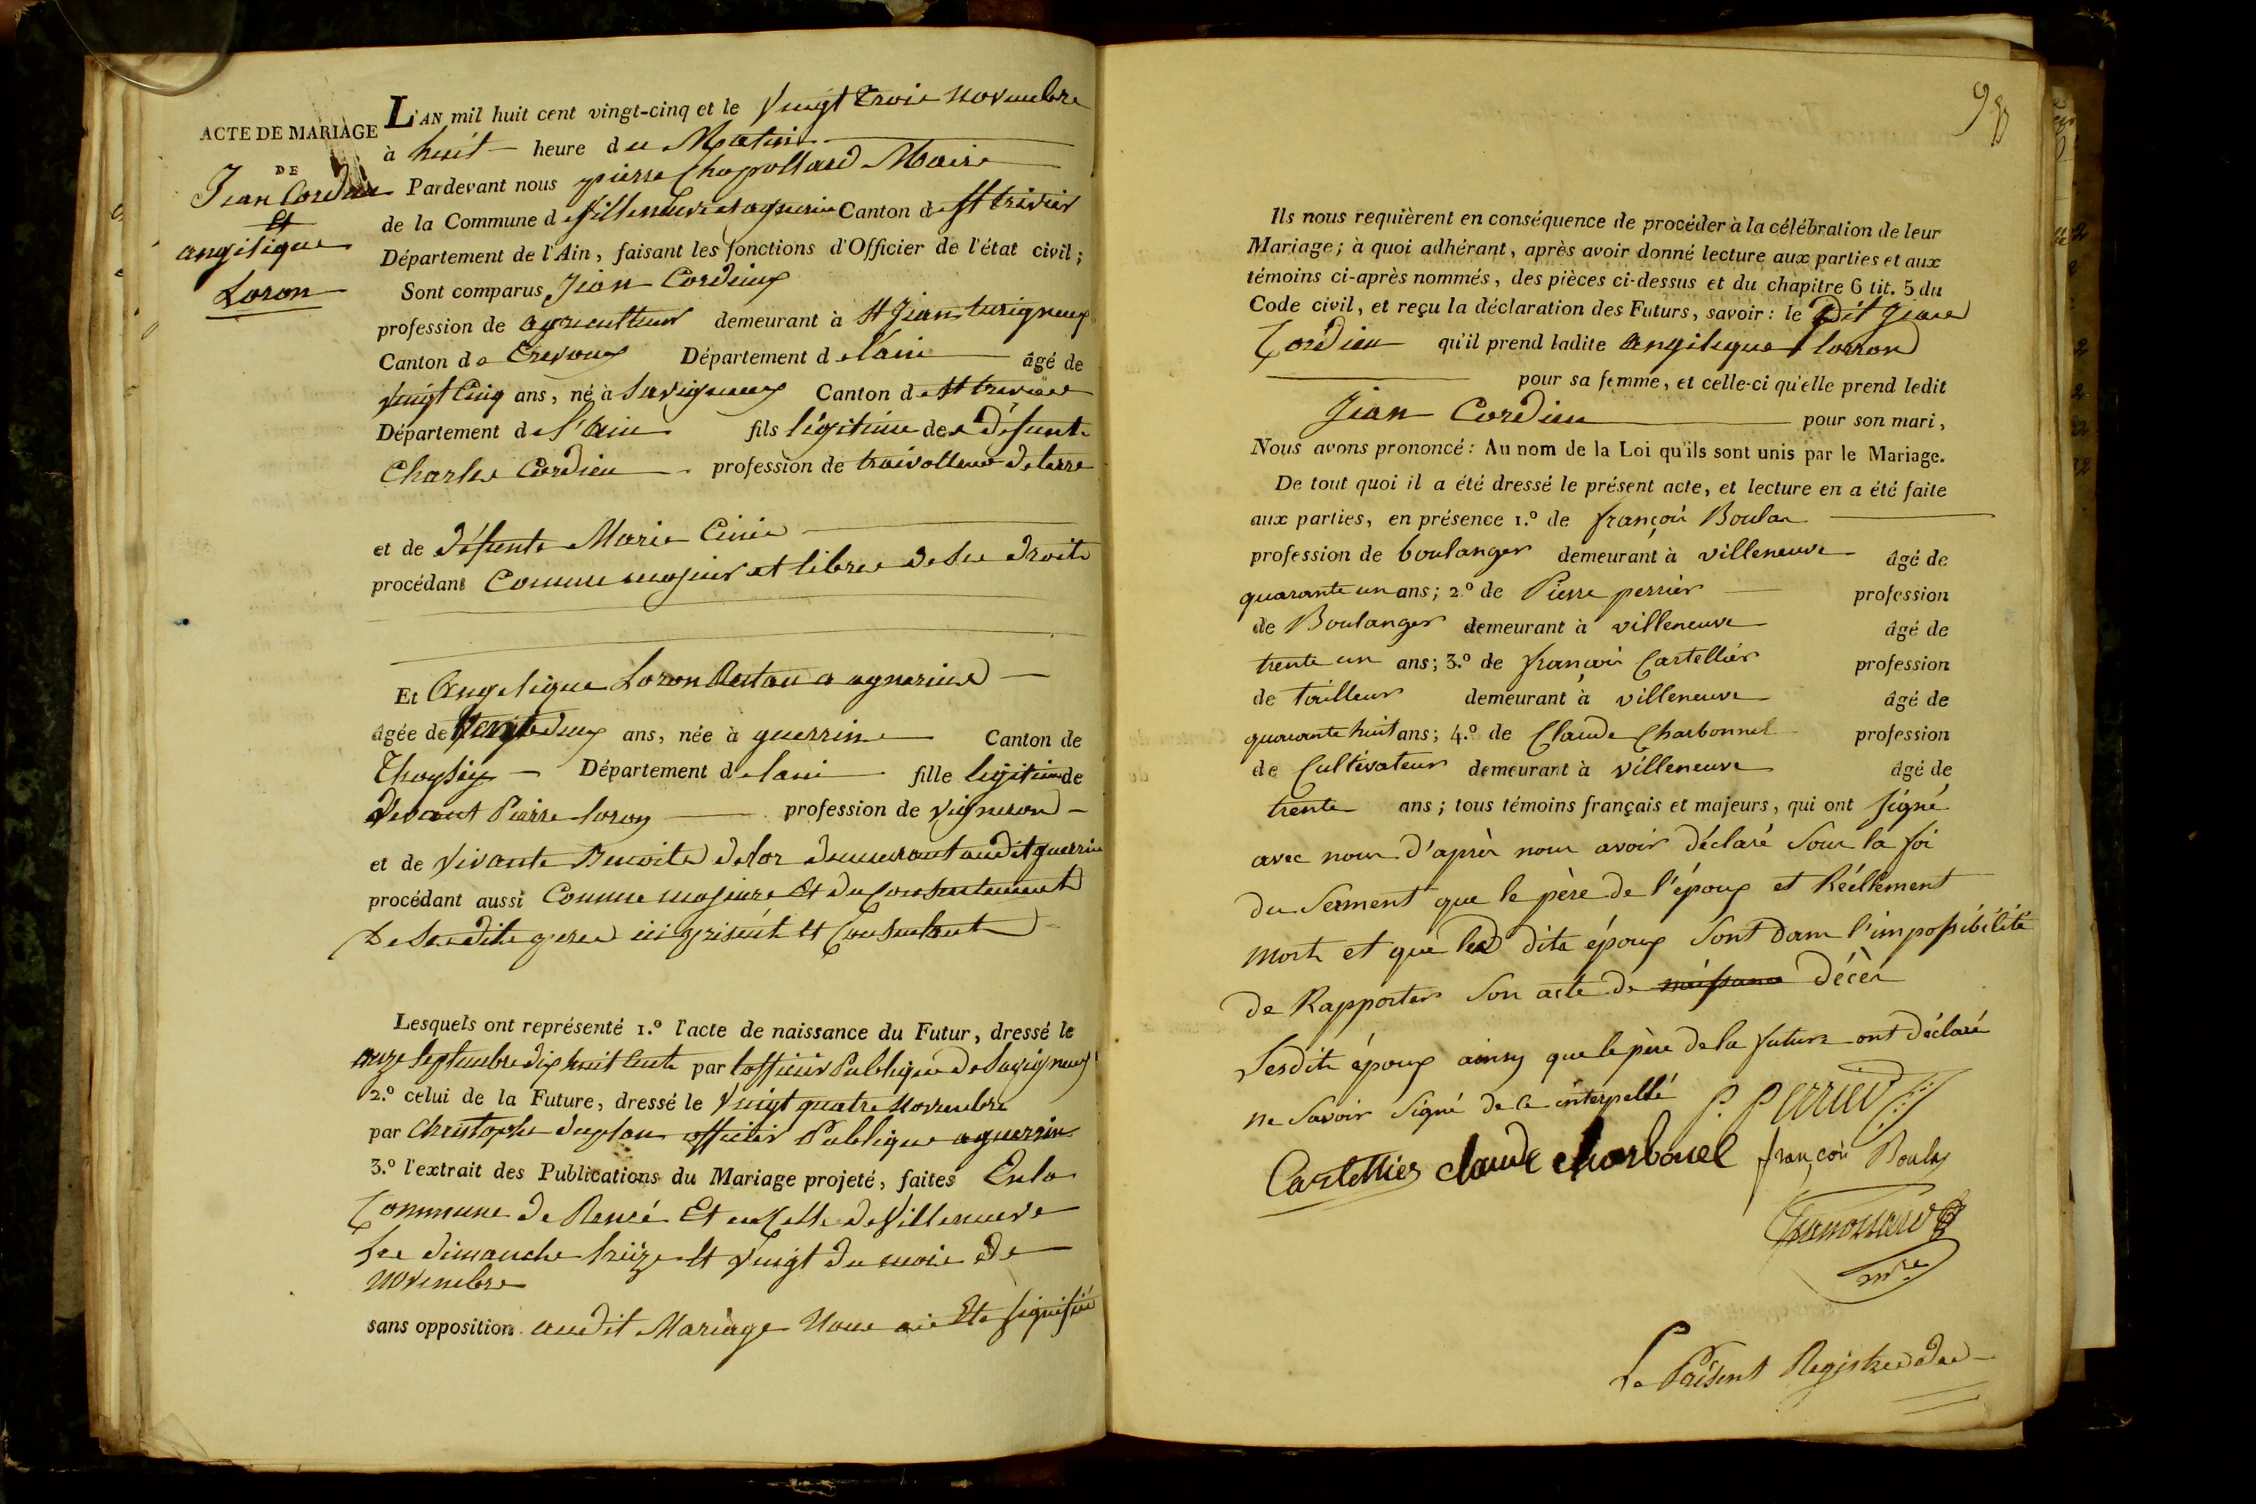 ACTE DE MARIAGE
DE
Jean Cordieu
Et
angelique
Loron
L'AN mil huit cent vingt-cinq et le vingt trois novembre
à huit heure du Matin
Pardevant nous pierre Chapollard Maire
de la Commune de Villeneuve et agnerin Canton de St trivier
Département de l'Ain, faisant les fonctions d'Officier de l'état civil;
Sont comparus Jean Cordieux
profession de agriculteur demeurant à St Jean turigneux
Canton de trevoux Département de lain âgé de
vingt Cinq ans, né à Savigneux Canton de St trivier
Département de l'ain fils légitime des défunt
Charles Cordieu profession de travailleur de terre
et de défunte Marie
procédant Comme majeur et libre de ses droits
Et Angelique Loron
âgée de deux ans, née à guerrin Canton de
Thoyssey Département de lain fille légitime de
vivant Pierre loron profession de vigneron
et de vivante Benoite delor demeurant audit guerrin
procédant aussi Comme majeure Et du Consentement
De ses dits pere ici présent et Consentant
Lesquels ont représenté 1.º l'acte de naissance du Futur, dressé le
onze Septembre dix huit Cents par lofficier Publique de Savigneux
2.º celui de la Future, dressé le vingt quatre novembre
par Christophe officier Publique a guerrin
3.º l'extrait des Publications du Mariage projeté, faites En la
Commune de Rancé Et en Celle de Villeneuve
Les dimanche treize et vingt du mois de
novembre
sans opposition audit Mariage Nous aie Eté signifié
98
Ils nous requièrent en conséquence de procéder à la célébration de leur
Mariage; à quoi adhérant, après avoir donné lecture aux parties et aux
témoins ci-après nommés, des pièces ci-dessus et du chapitre 6 tit. 5 du
Code civil, et reçu la déclaration des Futurs, savoir: le Dit Jean
Cordieu qu'il prend ladite Angelique lorron
pour sa femme, et celle-ci qu'elle prend ledit
Jean Cordieu pour son mari,
Nous avons prononcé: Au nom de la Loi qu'ils sont unis par le Mariage.
De tout quoi il a été dressé le présent acte, et lecture en a été faite
aux parties, en présence 1.º de françois Boulas
profession de boulanger demeurant à villeneuve âgé de
quarante un ans; 2.º de Pierre perrier profession
de Boulanger demeurant à villeneuve âgé de
trente un ans; 3.º de françois Cartellier profession
de tailleur demeurant à villeneuve âgé de
quarante huit ans; 4.º de Claude Charbonnel profession
de Cultivateur demeurant à villeneuve âgé de
trente ans; tous témoins français et majeurs, qui ont signé
avec nous d'après nous avoir déclaré Sous la foi
du Serment que le père de l'époux et Réellement
mort et que les dits époux Sont dans l'impossibilité
de Rapporter Son acte de naissance décès
Lesdits époux ainsy que le père de la future ont déclaré
ne Savoir Signé de ce interpellé P. Perrier
Cartellier claude charbonel françois Boulas
Chapollard
mre
Le Présent Registre